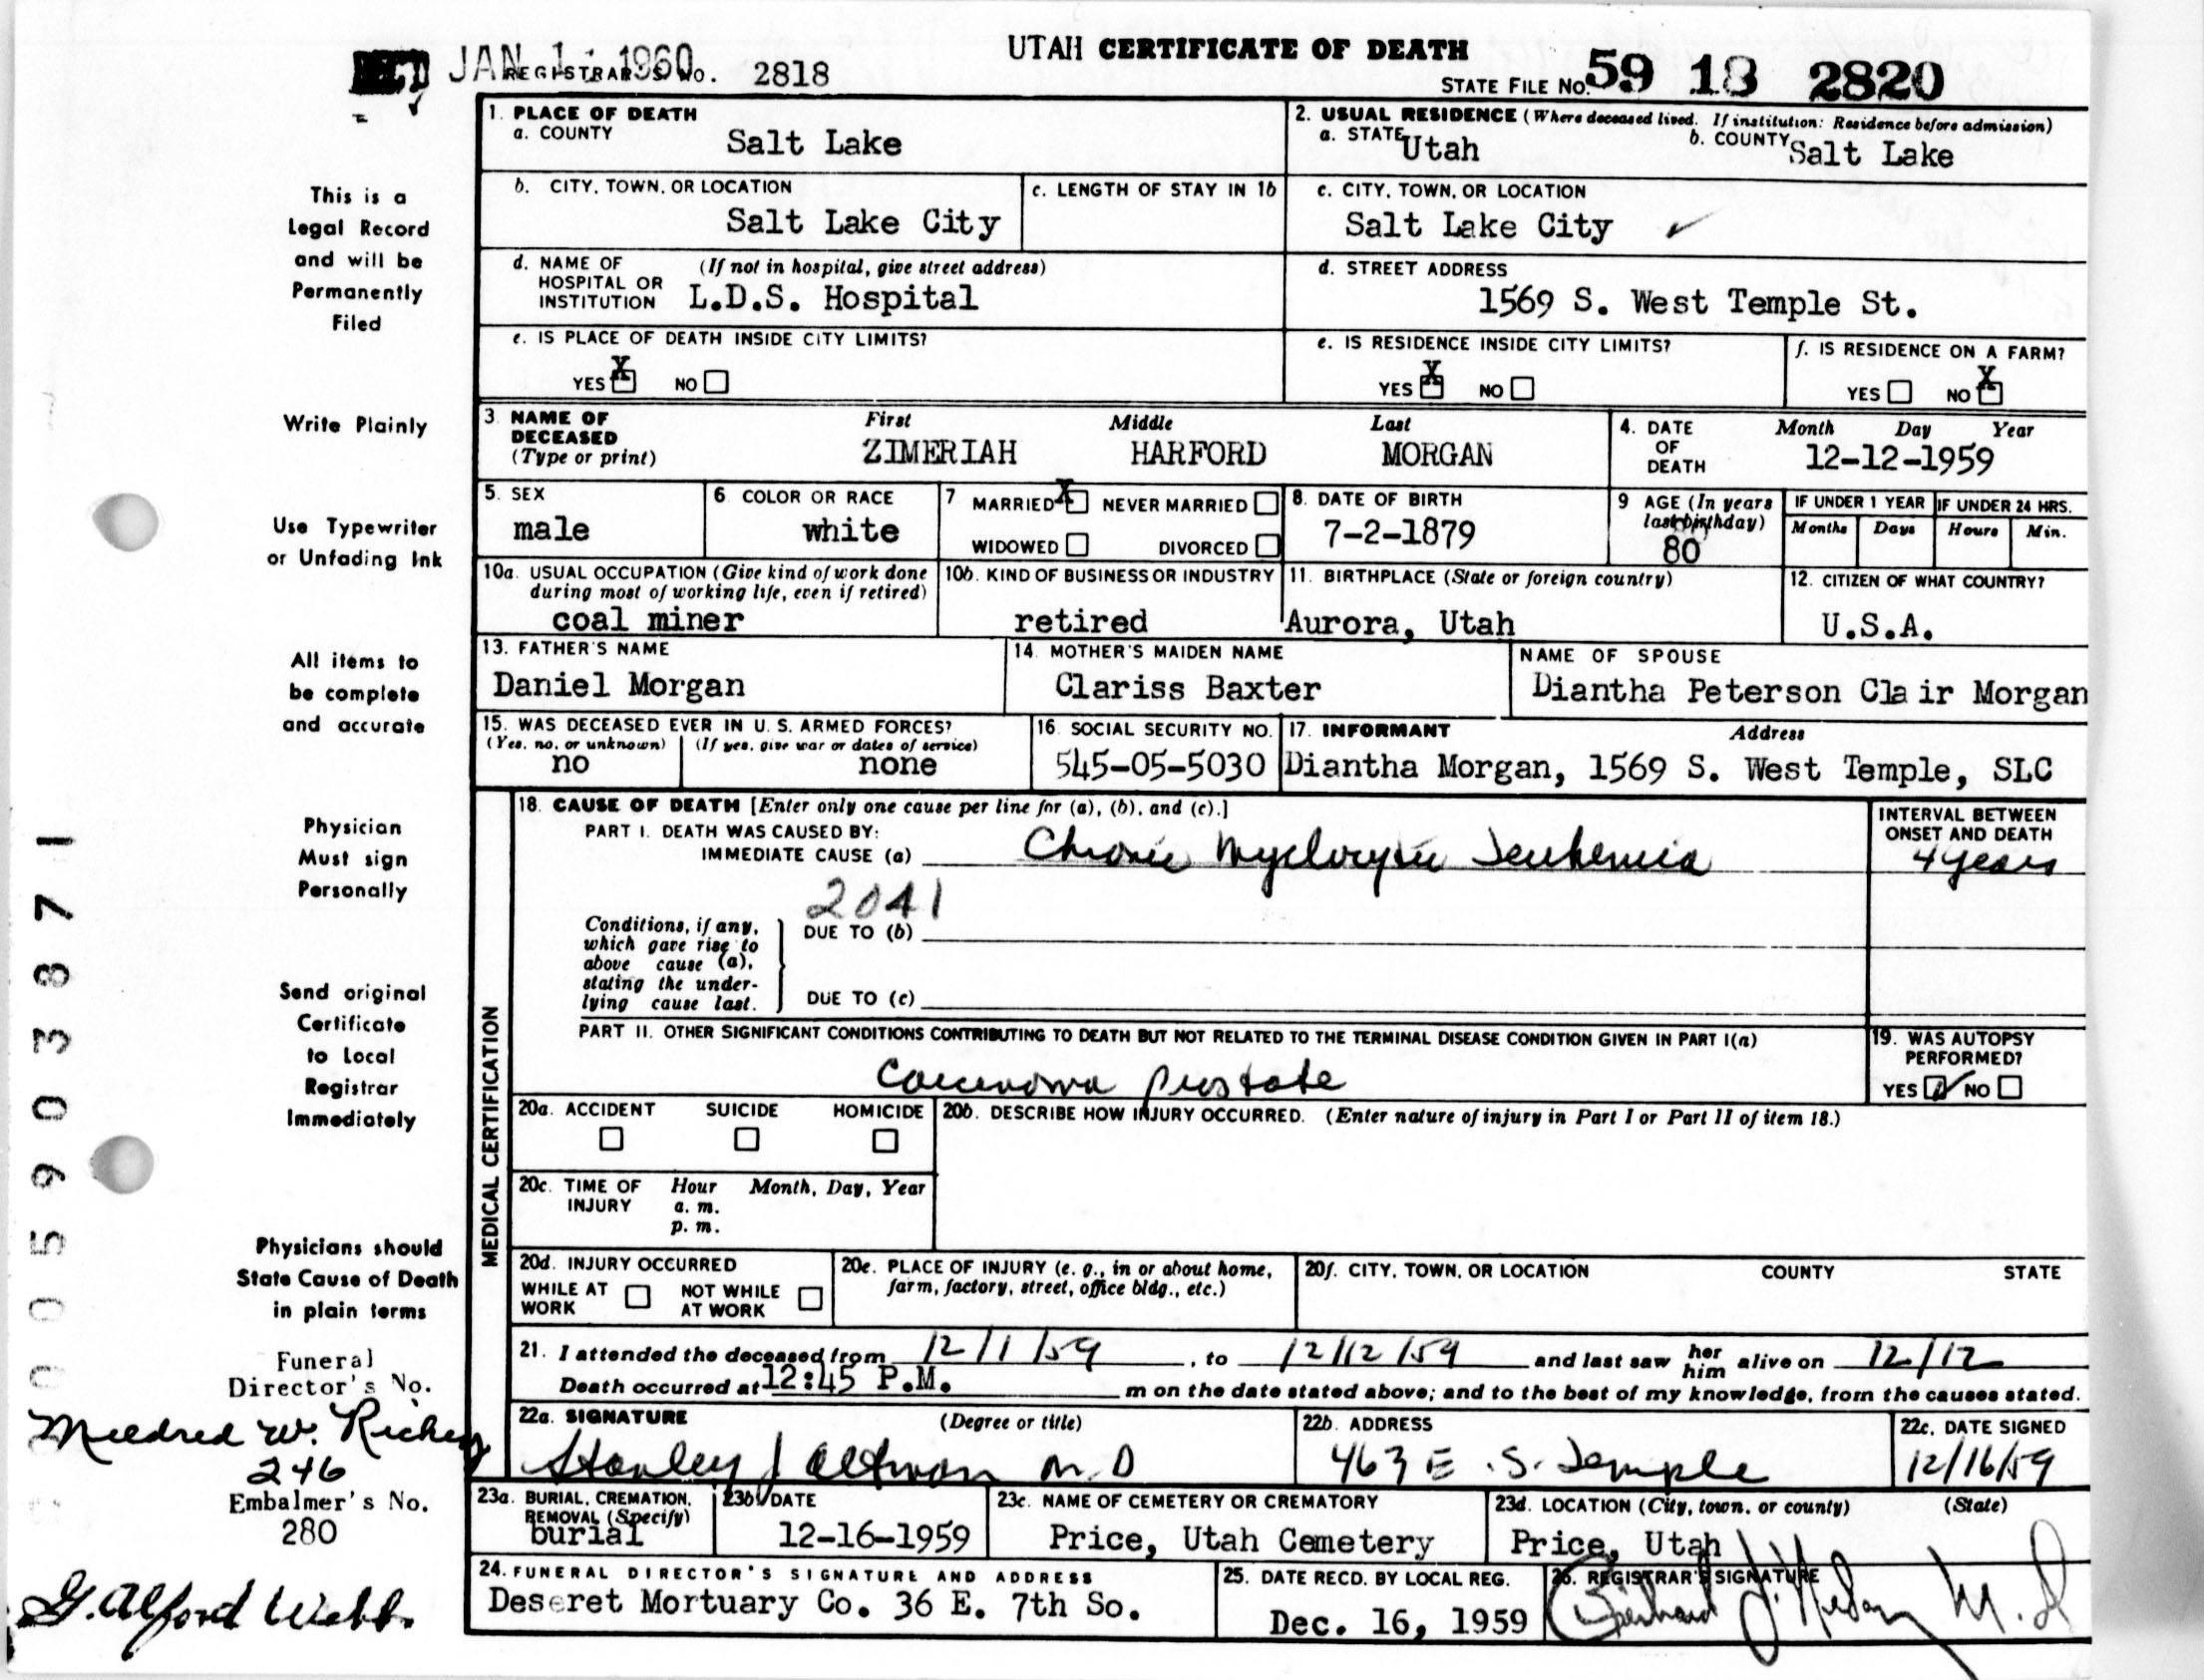 UTAH CERTIFICATE OF DEATH
REC'D JAN 1 1960
REGISTRAR'S NO. 2818
STATE FILE NO. 59 18 2820
1. PLACE OF DEATH
a. COUNTY
Salt Lake
2. USUAL RESIDENCE (Where deceased lived. If institution: Residence before admission)
a. STATE Utah
b. COUNTY Salt Lake
This is a
Legal Record
and will be
Permanently
Filed
b. CITY, TOWN, OR LOCATION
Salt Lake City
c. LENGTH OF STAY IN 1b
c. CITY, TOWN, OR LOCATION
Salt Lake City
d. NAME OF HOSPITAL OR INSTITUTION (If not in hospital, give street address)
L.D.S. Hospital
d. STREET ADDRESS
1569 S. West Temple St.
e. IS PLACE OF DEATH INSIDE CITY LIMITS?
YES X NO
e. IS RESIDENCE INSIDE CITY LIMITS?
YES X NO
f. IS RESIDENCE ON A FARM?
YES NO X
Write Plainly
3. NAME OF DECEASED (Type or print)
First Middle Last
ZIMERIAH HARFORD MORGAN
4. DATE OF DEATH Month Day Year
12-12-1959
Use Typewriter
or Unfading Ink
5. SEX
male
6 COLOR OR RACE
white
7 MARRIED X NEVER MARRIED
WIDOWED DIVORCED
8. DATE OF BIRTH
7-2-1879
9 AGE (In years last birthday)
80
IF UNDER 1 YEAR IF UNDER 24 HRS.
Months Days Hours Min.
10a. USUAL OCCUPATION (Give kind of work done during most of working life, even if retired)
coal miner
10b. KIND OF BUSINESS OR INDUSTRY
retired
11. BIRTHPLACE (State or foreign country)
Aurora, Utah
12. CITIZEN OF WHAT COUNTRY?
U.S.A.
All items to
be complete
and accurate
13. FATHER'S NAME
Daniel Morgan
14. MOTHER'S MAIDEN NAME
Clariss Baxter
NAME OF SPOUSE
Diantha Peterson Clair Morgan
15. WAS DECEASED EVER IN U. S. ARMED FORCES?
(Yes, no, or unknown) (If yes, give war or dates of service)
no none
16. SOCIAL SECURITY NO.
545-05-5030
17. INFORMANT Address
Diantha Morgan, 1569 S. West Temple, SLC
Physician
Must sign
Personally
MEDICAL CERTIFICATION
18. CAUSE OF DEATH [Enter only one cause per line for (a), (b), and (c).]
PART I. DEATH WAS CAUSED BY:
IMMEDIATE CAUSE (a) Chronic Myelocytic Leukemia
INTERVAL BETWEEN ONSET AND DEATH
4 years
2041
Conditions, if any, which gave rise to above cause (a), stating the underlying cause last.
DUE TO (b)
DUE TO (c)
Send original
Certificate
to Local
Registrar
Immediately
PART II. OTHER SIGNIFICANT CONDITIONS CONTRIBUTING TO DEATH BUT NOT RELATED TO THE TERMINAL DISEASE CONDITION GIVEN IN PART I(a)
Carcinoma prostate
19. WAS AUTOPSY PERFORMED?
YES NO
20a. ACCIDENT SUICIDE HOMICIDE
20b. DESCRIBE HOW INJURY OCCURRED. (Enter nature of injury in Part I or Part II of item 18.)
20c. TIME OF INJURY Hour Month, Day, Year
a. m.
p. m.
Physicians should
State Cause of Death
in plain terms
20d. INJURY OCCURRED
WHILE AT WORK NOT WHILE AT WORK
20e. PLACE OF INJURY (e. g., in or about home, farm, factory, street, office bldg., etc.)
20f. CITY, TOWN, OR LOCATION COUNTY STATE
21. I attended the deceased from 12/1/59, to 12/12/59 and last saw her him alive on 12/12
Death occurred at 12:45 P.M. m on the date stated above; and to the best of my knowledge, from the causes stated.
Funeral
Director's No.
Mildred W. Richey
246
Embalmer's No.
280
G. Alford Webb
22a. SIGNATURE (Degree or title)
Stanley J Altman M.D
22b. ADDRESS
463 E. S. Temple
22c. DATE SIGNED
12/16/59
23a. BURIAL, CREMATION, REMOVAL (Specify)
burial
23b. DATE
12-16-1959
23c. NAME OF CEMETERY OR CREMATORY
Price, Utah Cemetery
23d. LOCATION (City, town, or county) (State)
Price, Utah
24. FUNERAL DIRECTOR'S SIGNATURE AND ADDRESS
Deseret Mortuary Co. 36 E. 7th So.
25. DATE RECD. BY LOCAL REG.
Dec. 16, 1959
26. REGISTRAR'S SIGNATURE
M.D